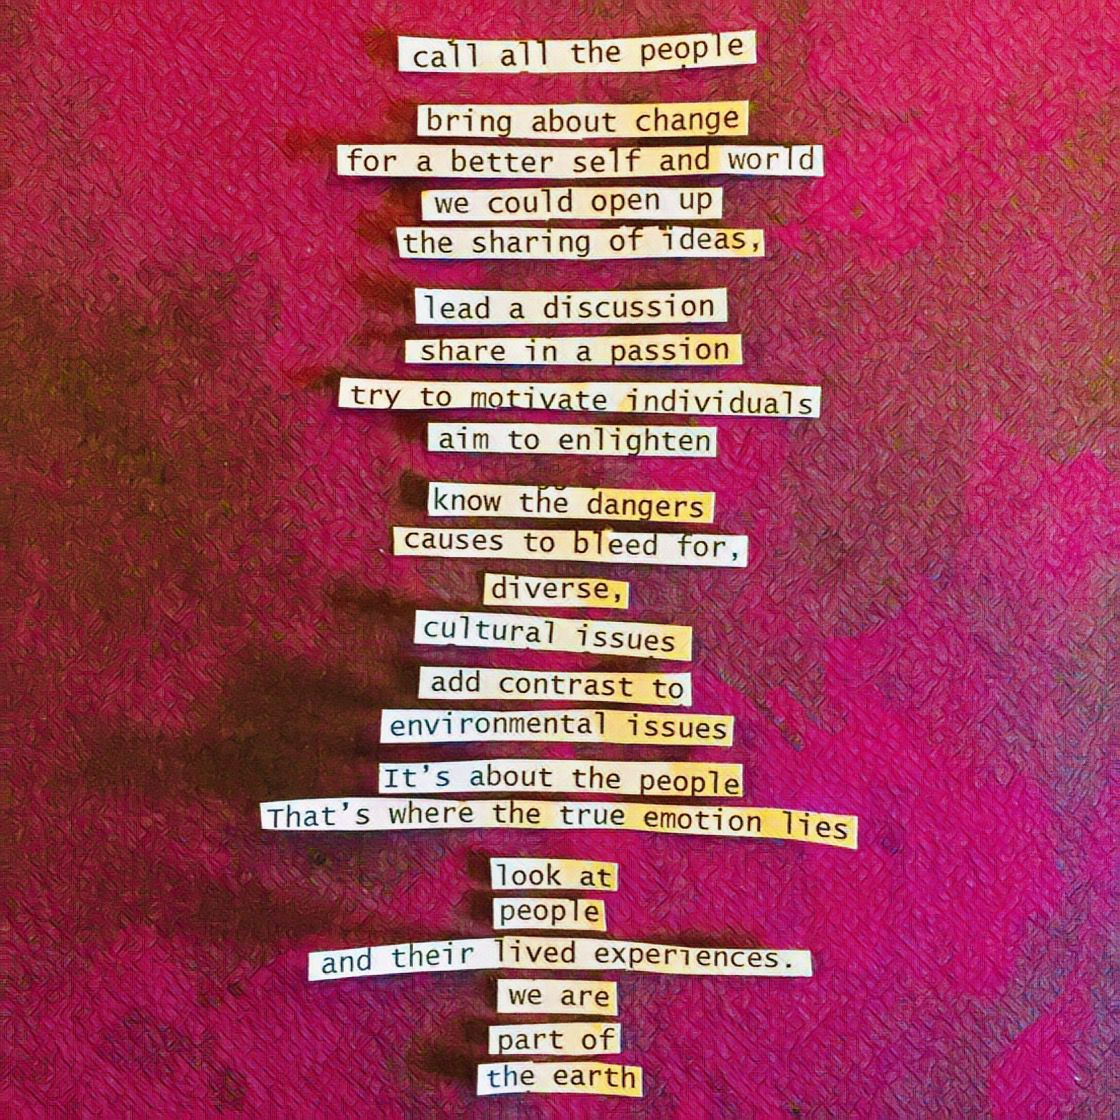 call all the people
bring about change
for a better self and world
we could open up
the sharing of ideas,
lead a discussion
share in a passion
try to motivate individuals
aim to enlighten
know the dangers
causes to bleed for,
diverse,
cultural issues
add contrast to
environmental issues
It's about the people
That's where the true emotion lies
look at
people
and their lived experiences.
we are
part of
the earth